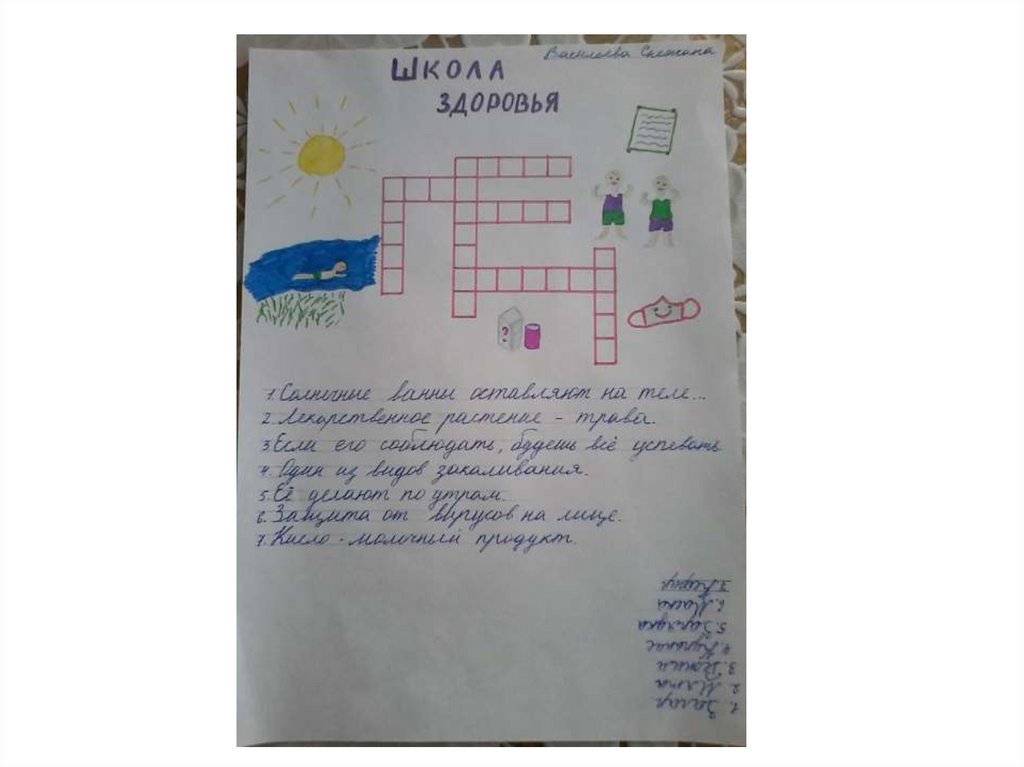 Васильева Снежана
ШКОЛА
ЗДОРОВЬЯ
1. Солнечные ванны оставляют на теле...
2. Лекарственное растение - трава.
3. Если его соблюдать, будешь всё успевать
4. Один из видов закаливания.
5. Её делают по утрам.
6. Защита от вирусов на лице.
7. Кисло-молочный продукт.
1. Загар
2. Мята
3. Режим
4. Купание
5. Зарядка
6. Маска
7. Кефир